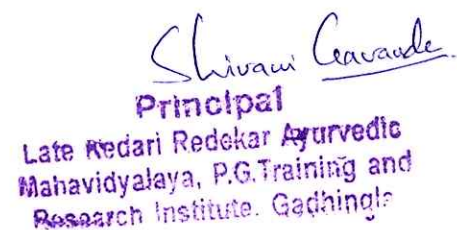 Shivani Gavade
Principal
Late Kedari Redekar Ayurvedic
Mahavidyalaya, P.G.Training and
Research Institute. Gadhingla